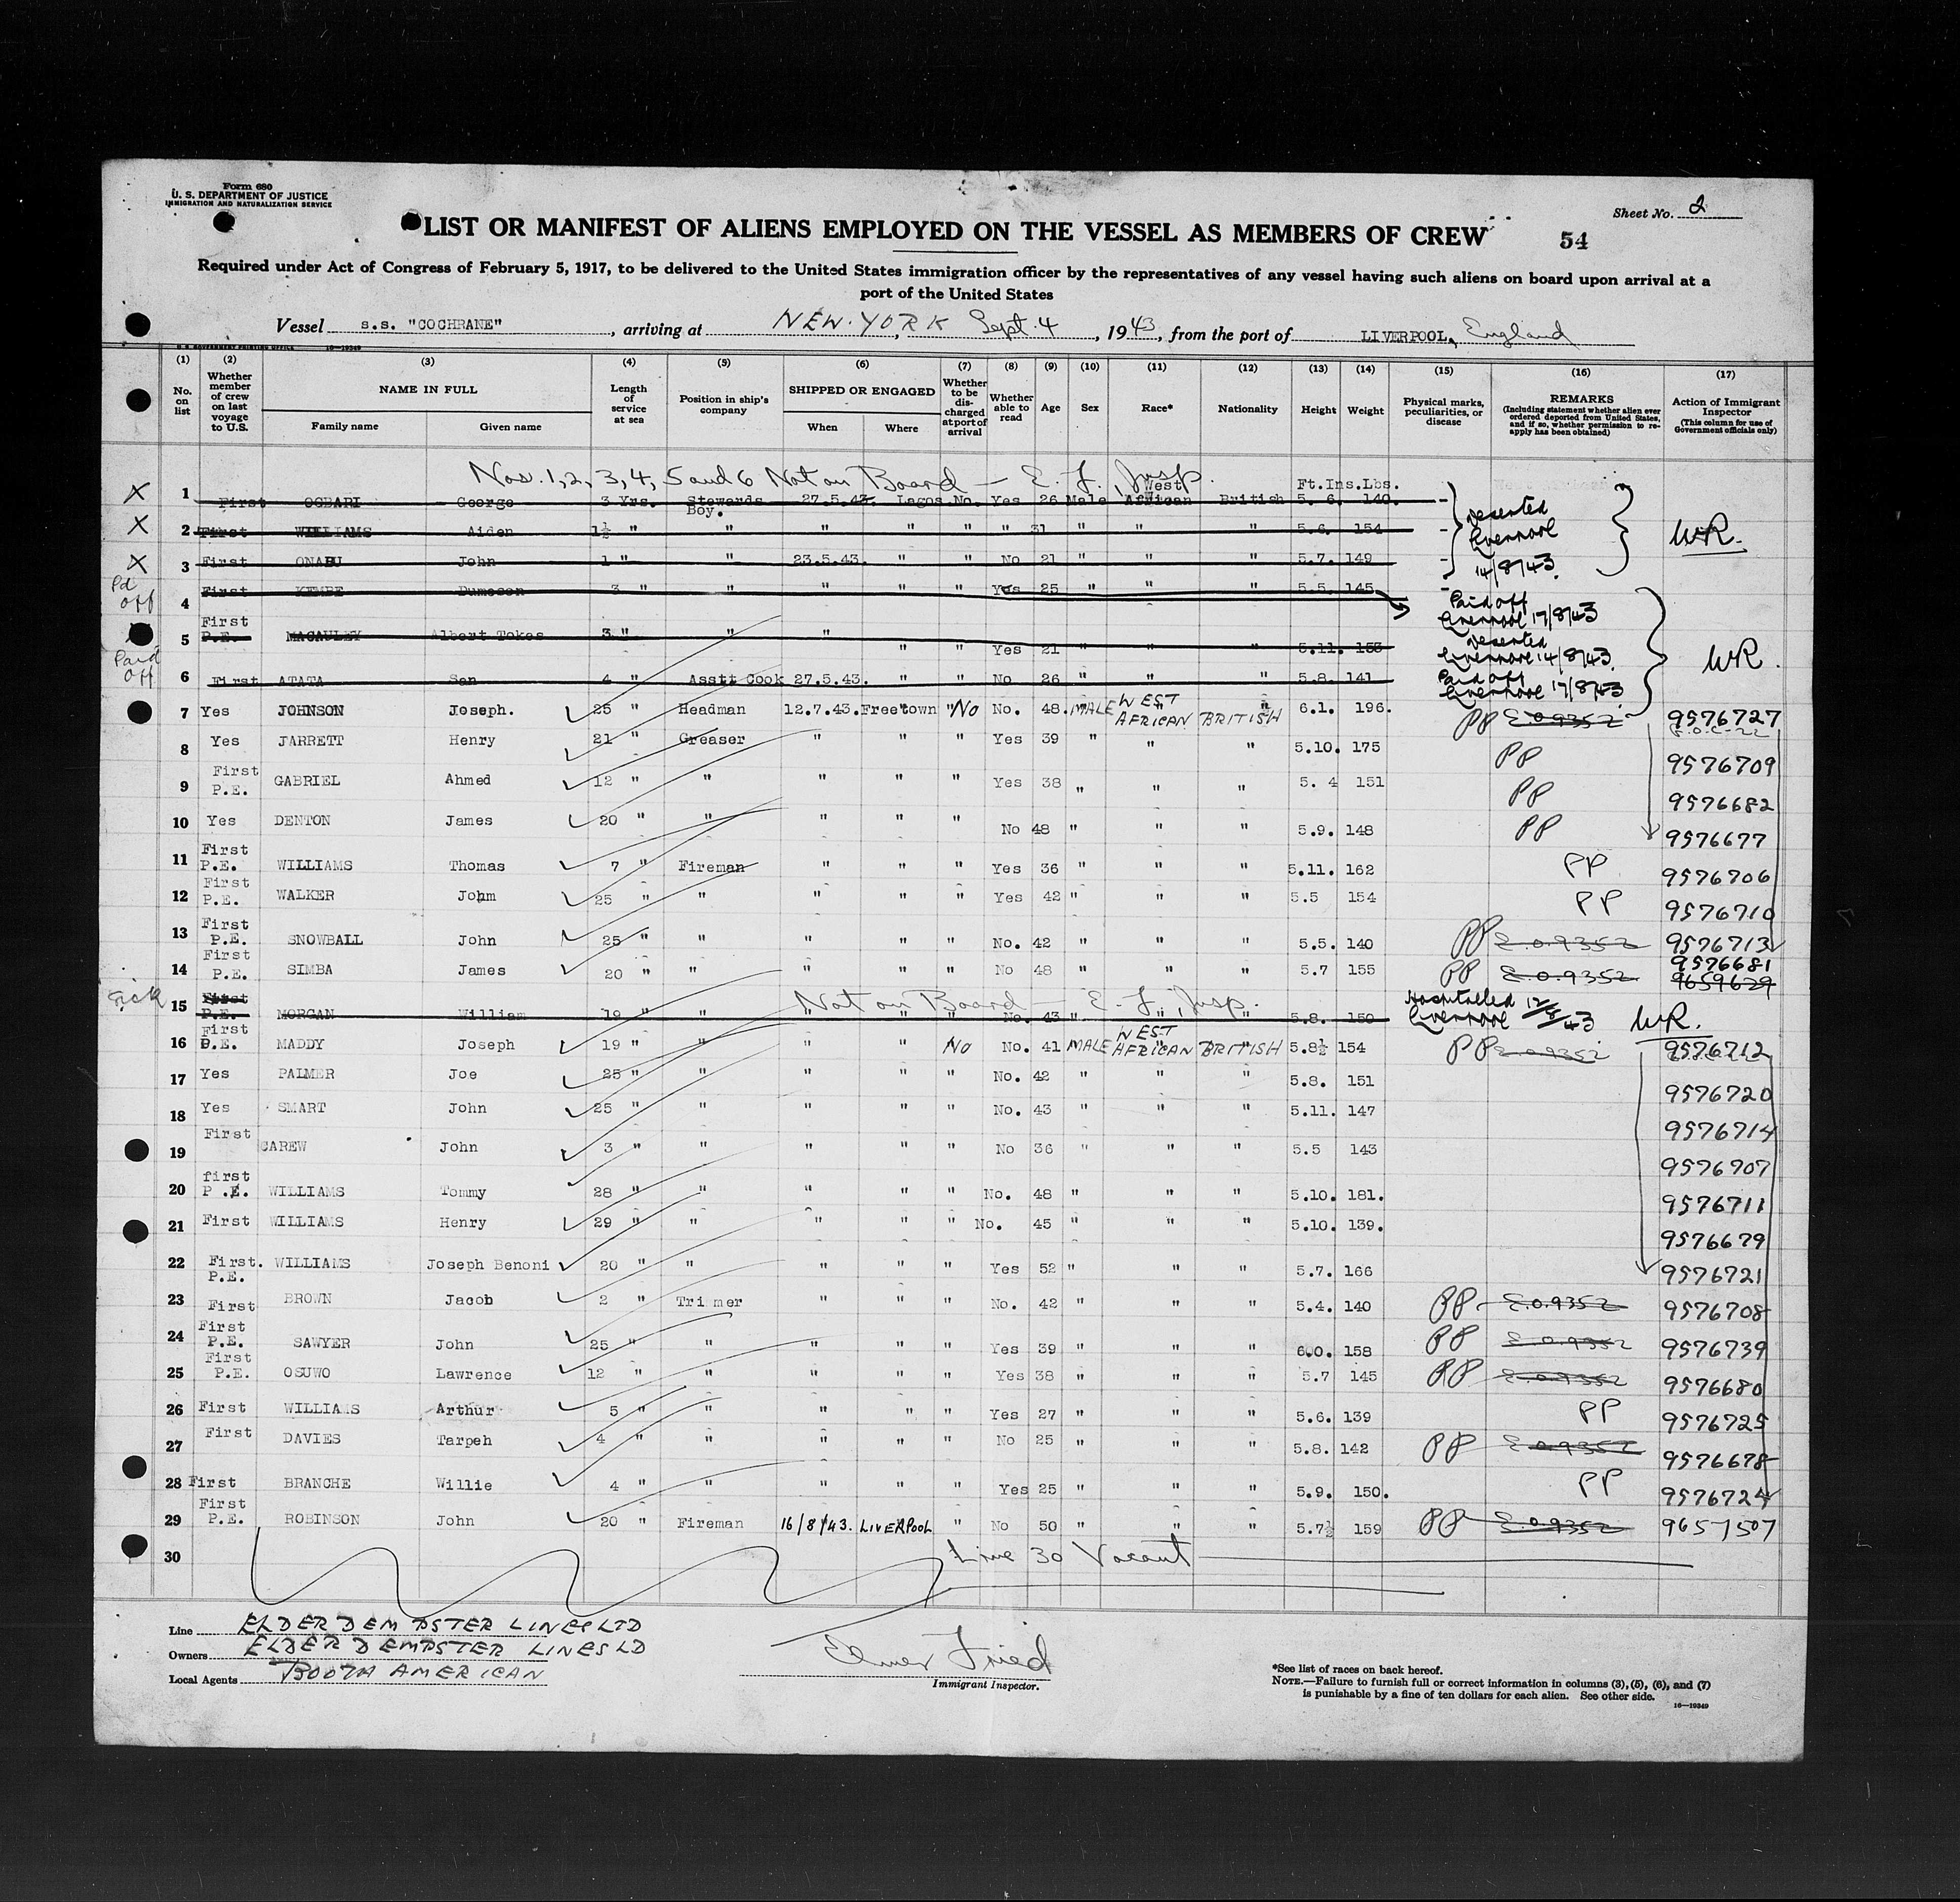 Form 680
U. S. DEPARTMENT OF JUSTICE
IMMIGRATION AND NATURALIZATION SERVICE
Sheet No. 2
LIST OR MANIFEST OF ALIENS EMPLOYED ON THE VESSEL AS MEMBERS OF CREW 54
Required under Act of Congress of February 5, 1917, to be delivered to the United States immigration officer by the representatives of any vessel having such aliens on board upon arrival at a
port of the United States
Vessel s.s. "COCHRANE", arriving at NEW-YORK Sept. 4, 1943, from the port of LIVERPOOL, England
U. S. GOVERNMENT PRINTING OFFICE 16—19349
(1) (2) (3) (4) (5) (6) (7) (8) (9) (10) (11) (12) (13) (14) (15) (16) (17)
No. on list Whether member of crew on last voyage to U.S. NAME IN FULL Family name Given name Length of service at sea Position in ship's company SHIPPED OR ENGAGED When Where Whether to be discharged at port of arrival Whether able to read Age Sex Race* Nationality Height Weight Physical marks, peculiarities, or disease REMARKS (Including statement whether alien ever ordered deported from United States, and if so, whether permission to reapply has been obtained) Action of Immigrant Inspector (This column for use of Government officials only)
Nos. 1, 2, 3, 4, 5 and 6 Not on Board — E. F., Insp.
Ft.Ins.Lbs.
X 1 First OGBARI George 3 Yrs. Stewards Boy. 27.5.43. Lagos No. Yes 26 Male West African British 5. 6. 140. Deserted Liverpool 14/8/43 WR.
X 2 First WILLIAMS Aiden 1½ " " " " " " 31 " " " 5.6. 154
X 3 First ONABU John 1 " " 23.5.43. " " No 21 " " " 5.7. 149
Pd off 4 First KEMBE Dumeson 3 " " " " " Yes 25 " " " 5.5. 145 Paid off Liverpool 17/8/43
5 First P.E. MACAULEY Albert Tokes 3 " " " " " Yes 21 " " " 5.11. 153 Deserted Liverpool 14/8/43 WR.
Paid off 6 First ATATA Sen 4 " Asstt Cook 27.5.43. " " No 26 " " " 5.8. 141 Paid off Liverpool 17/8/43
7 Yes JOHNSON Joseph. 25 " Headman 12.7.43. Freetown " No No. 48. MALE WEST AFRICAN BRITISH 6.1. 196. PP E.O.9352 9576727
8 Yes JARRETT Henry 21 " Greaser " " " Yes 39 " " " 5.10. 175 PP 9576709
9 First P.E. GABRIEL Ahmed 12 " " " " " Yes 38 " " " 5. 4 151 PP 9576682
10 Yes DENTON James 20 " " " " " No 48 " " " 5.9. 148 PP 9576677
11 First P.E. WILLIAMS Thomas 7 " Fireman " " " Yes 36 " " " 5.11. 162 PP 9576706
12 First P.E. WALKER John 25 " " " " " Yes 42 " " " 5.5 154 PP 9576710
13 First P.E. SNOWBALL John 25 " " " " " No. 42 " " " 5.5. 140 PP E.O.9352 9576713
14 First P.E. SIMBA James 20 " " " " " No 48 " " " 5.7 155 PP E.O.9352 9576681 9659629
Not on Board — E. F., Insp.
Sick 15 First P.E. MORGAN William 19 " " " " " No. 43 " " " 5.8. 150 Hospitalled Liverpool 12/8/43 WR.
16 First P.E. MADDY Joseph 19 " " " " No No. 41 MALE WEST AFRICAN BRITISH 5.8½ 154 PP E.O.9352 9576712
17 Yes PALMER Joe 25 " " " " " No. 42 " " " 5.8. 151 9576720
18 Yes SMART John 25 " " " " " No. 43 " " " 5.11. 147 9576714
19 First CAREW John 3 " " " " " No 36 " " " 5.5 143 9576707
20 first P.E. WILLIAMS Tommy 28 " " " " " No. 48 " " " 5.10. 181. 9576711
21 First WILLIAMS Henry 29 " " " " " No. 45 " " " 5.10. 139. 9576679
22 First. P.E. WILLIAMS Joseph Benoni 20 " " " " " Yes 52 " " " 5.7. 166 9576721
23 First BROWN Jacob 2 " Trimmer " " " No. 42 " " " 5.4. 140 PP E.O.9352 9576708
24 First P.E. SAWYER John 25 " " " " " Yes 39 " " " 6.0. 158 PP E.O.9352 9576739
25 First P.E. OSUWO Lawrence 12 " " " " " Yes 38 " " " 5.7 145 PP E.O.9352 9576680
26 First WILLIAMS Arthur 5 " " " " " Yes 27 " " " 5.6. 139 PP 9576725
27 First DAVIES Tarpeh 4 " " " " " No 25 " " " 5.8. 142 PP E.O.9352 9576678
28 First BRANCHE Willie 4 " " " " " Yes 25 " " " 5.9. 150. PP 9576724
29 First P.E. ROBINSON John 20 " Fireman 16/8/43. LIVERPOOL " No 50 " " " 5.7½ 159 PP E.O.9352 9657507
30 Line 30 Vacant
Line ELDER DEMPSTER LINES LTD
Owners ELDER DEMPSTER LINES LD
Local Agents BOOTH AMERICAN
Elmer Fried
Immigrant Inspector.
*See list of races on back hereof.
NOTE.—Failure to furnish full or correct information in columns (3), (5), (6), and (7)
is punishable by a fine of ten dollars for each alien. See other side.
16—19349